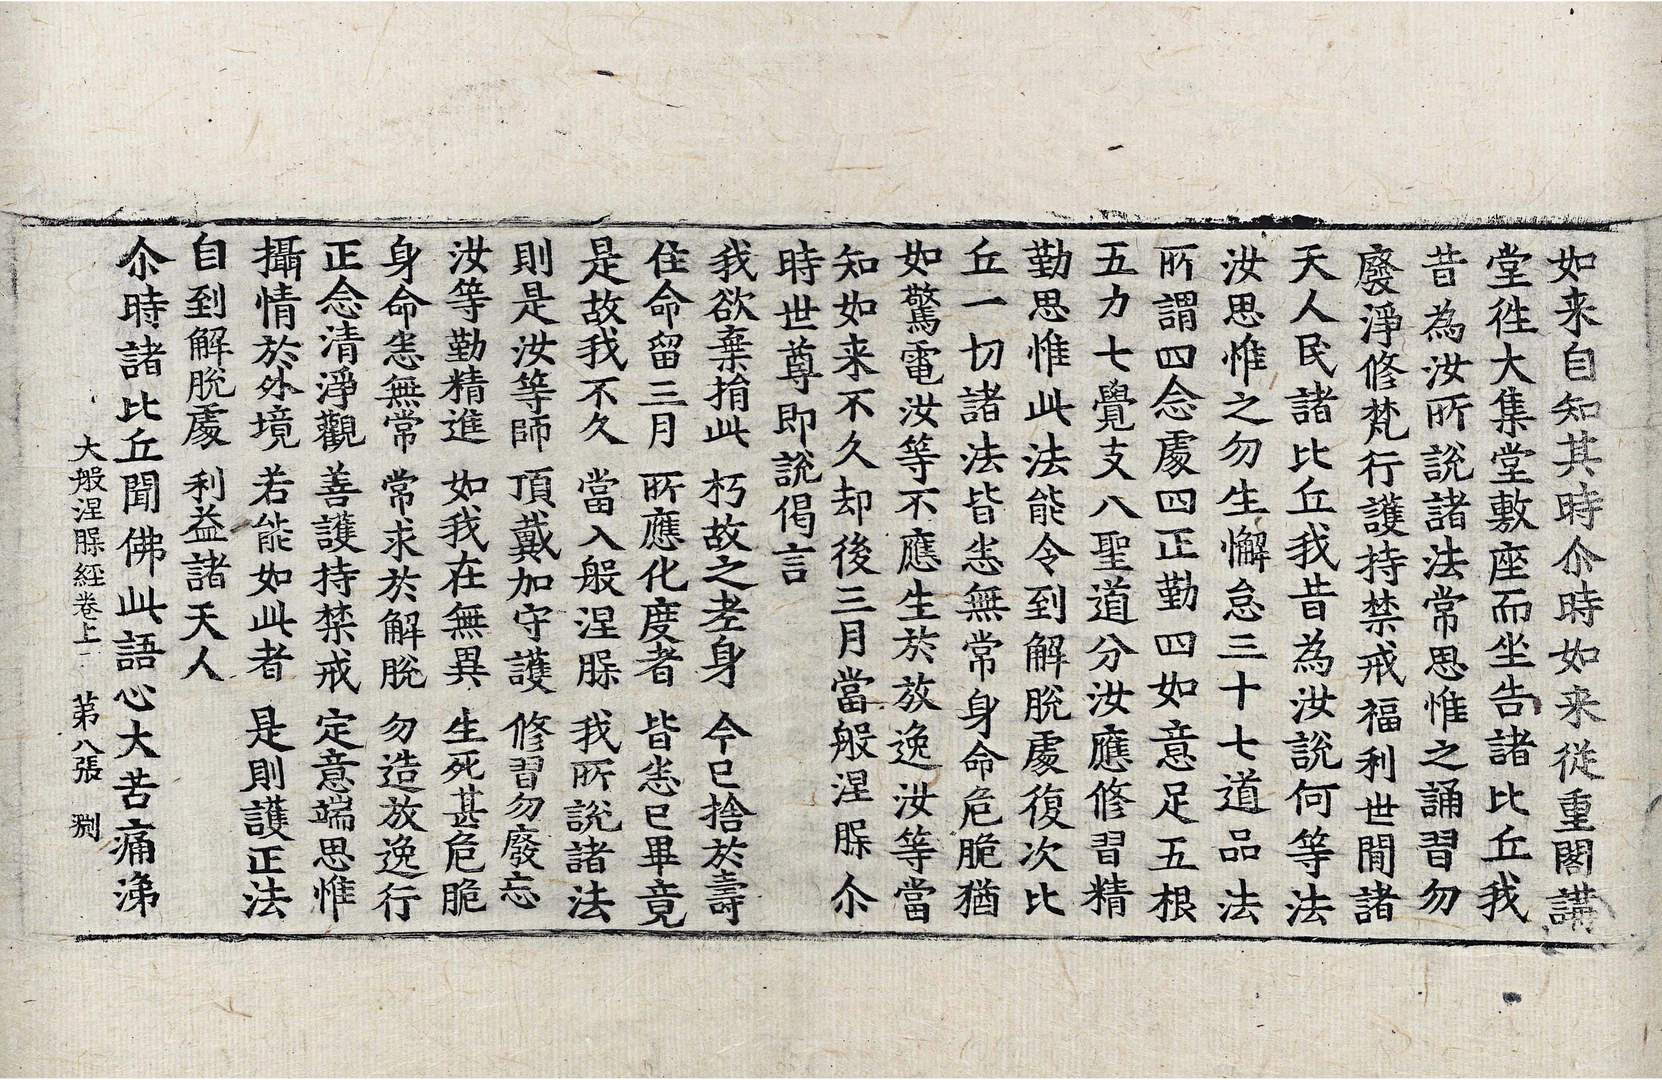 如来自知其時尒時如来従重閣講
堂徃大集堂敷座而坐告諸比丘我
昔為汝所說諸法常思惟之誦習勿
廢淨修梵行護持禁戒福利世間諸
天人民諸比丘我昔為汝說何等法
汝思惟之勿生懈怠三十七道品法
所謂四念處四正勤四如意足五根
五力七覺支八聖道分汝應修習精
勤思惟此法能令到解脫處復次比
丘一切諸法皆悉無常身命危脆猶
如驚電汝等不應生於放逸汝等當
知如来不久却後三月當般涅槃尒
時世尊即說偈言
我欲棄捐此 朽故之老身 今已捨於壽
住命留三月 所應化度者 皆悉已畢竟
是故我不久 當入般涅槃 我所說諸法
則是汝等師 頂戴加守護 修習勿廢忘
汝等勤精進 如我在無異 生死甚危脆
身命悉無常 常求於解脫 勿造放逸行
正念清淨觀 善護持禁戒 定意端思惟
攝情於外境 若能如此者 是則護正法
自到解脫處 利益諸天人
尒時諸比丘聞佛此語心大苦痛涕
大般涅槃経卷上 第八張